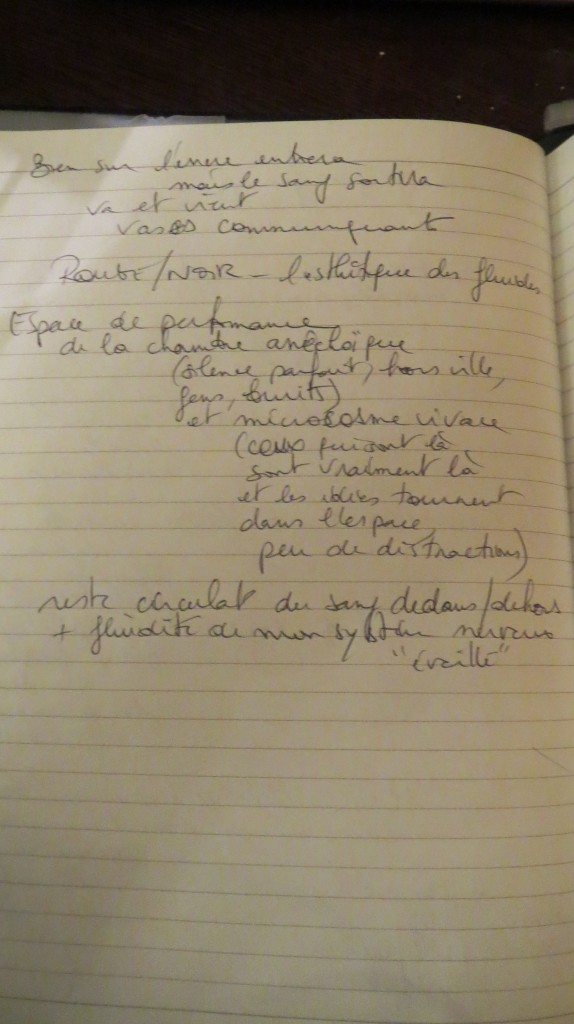 Bien sur l'encre entrera
mais le sang sortira
va et vient
vases communiquants
ROUGE/NOIR - l'esthétique des fluides
Espace de performance
de la chambre anéchoïque
(silence parfait, hors ville,
gens, bruits)
et microcosme vivace
(ceux qui sont là
sont vraiment là
et les idées tournent
dans l'espace,
peu de distractions)
reste circulat du sang dedans/dehors
+ fluidité de mon système nerveux
"éveillé"